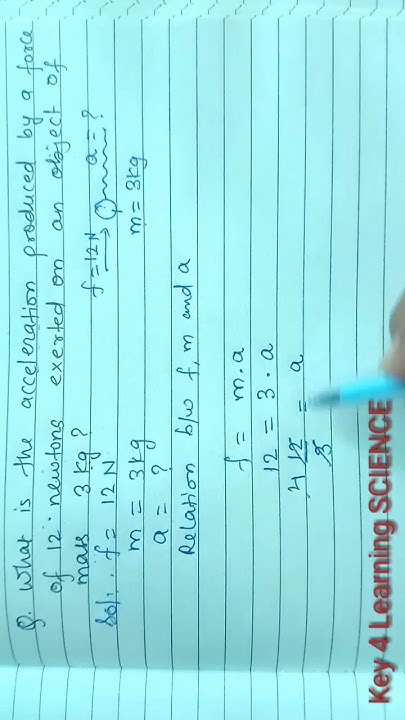 Q. What is the acceleration produced by a force
of 12 newtons exerted on an object of
mass 3 kg?
Sol:. f = 12 N
f = 12 N
a = ?
m = 3 kg
m = 3 kg
a = ?
Relation b/w f, m and a
f = m . a
12 = 3 . a
4 12/3 = a
Key 4 Learning SCIENCE